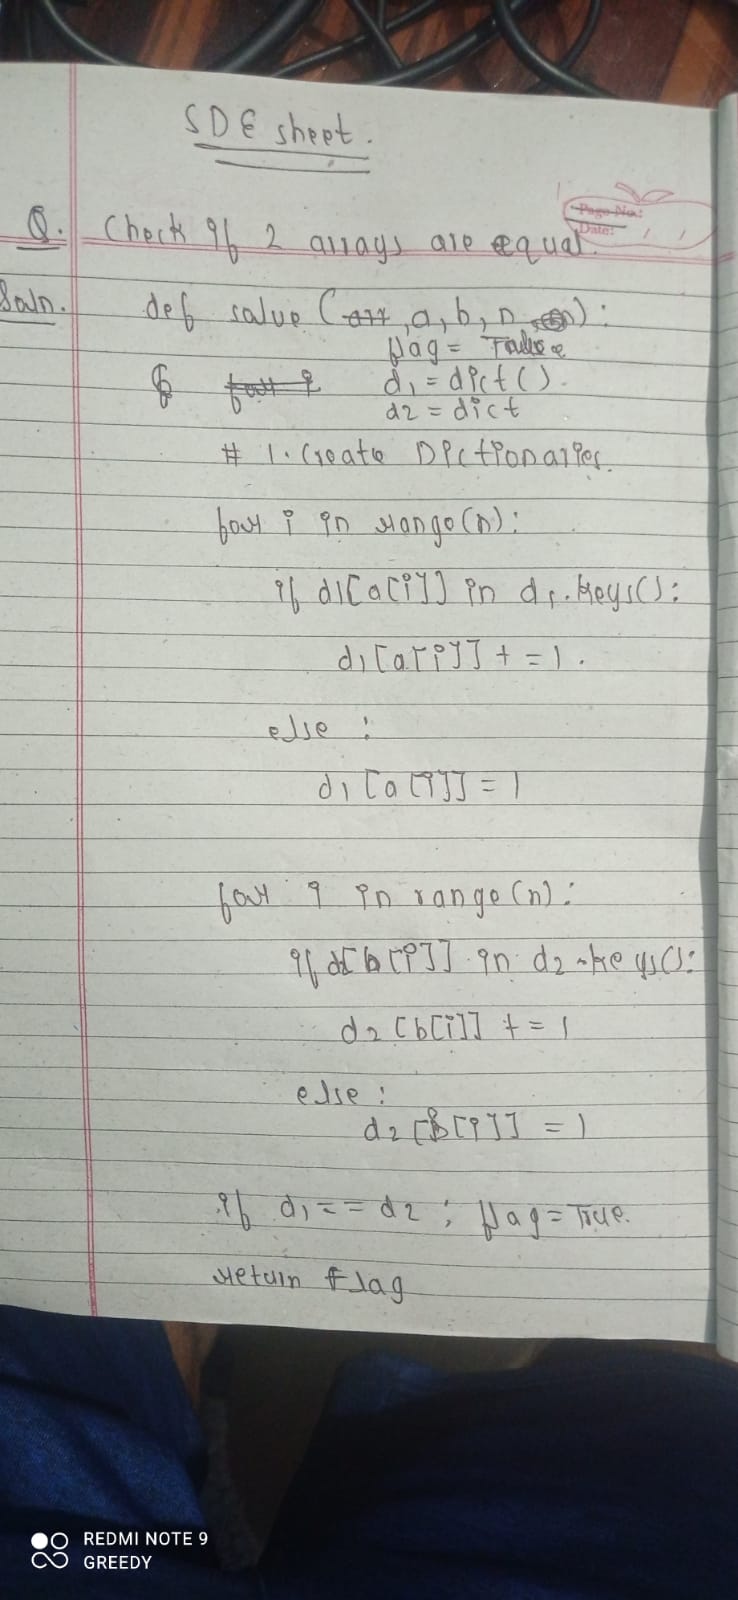 SDE sheet.
Page No.:
Date:
Q. Check if 2 arrays are equal.
Soln. def solve (arr, a, b, n):
flag = False
for i d1 = dict().
d2 = dict
# 1. Create Dictionaries.
for i in range(n):
if d1[a[i]] in d1.keys():
d1[a[i]] += 1.
else :
d1[a[i]] = 1
for i in range(n):
if d[b[i]] in d2.keys():
d2[b[i]] += 1
else :
d2[b[i]] = 1
if d1 == d2 : flag = True.
return flag
REDMI NOTE 9
GREEDY